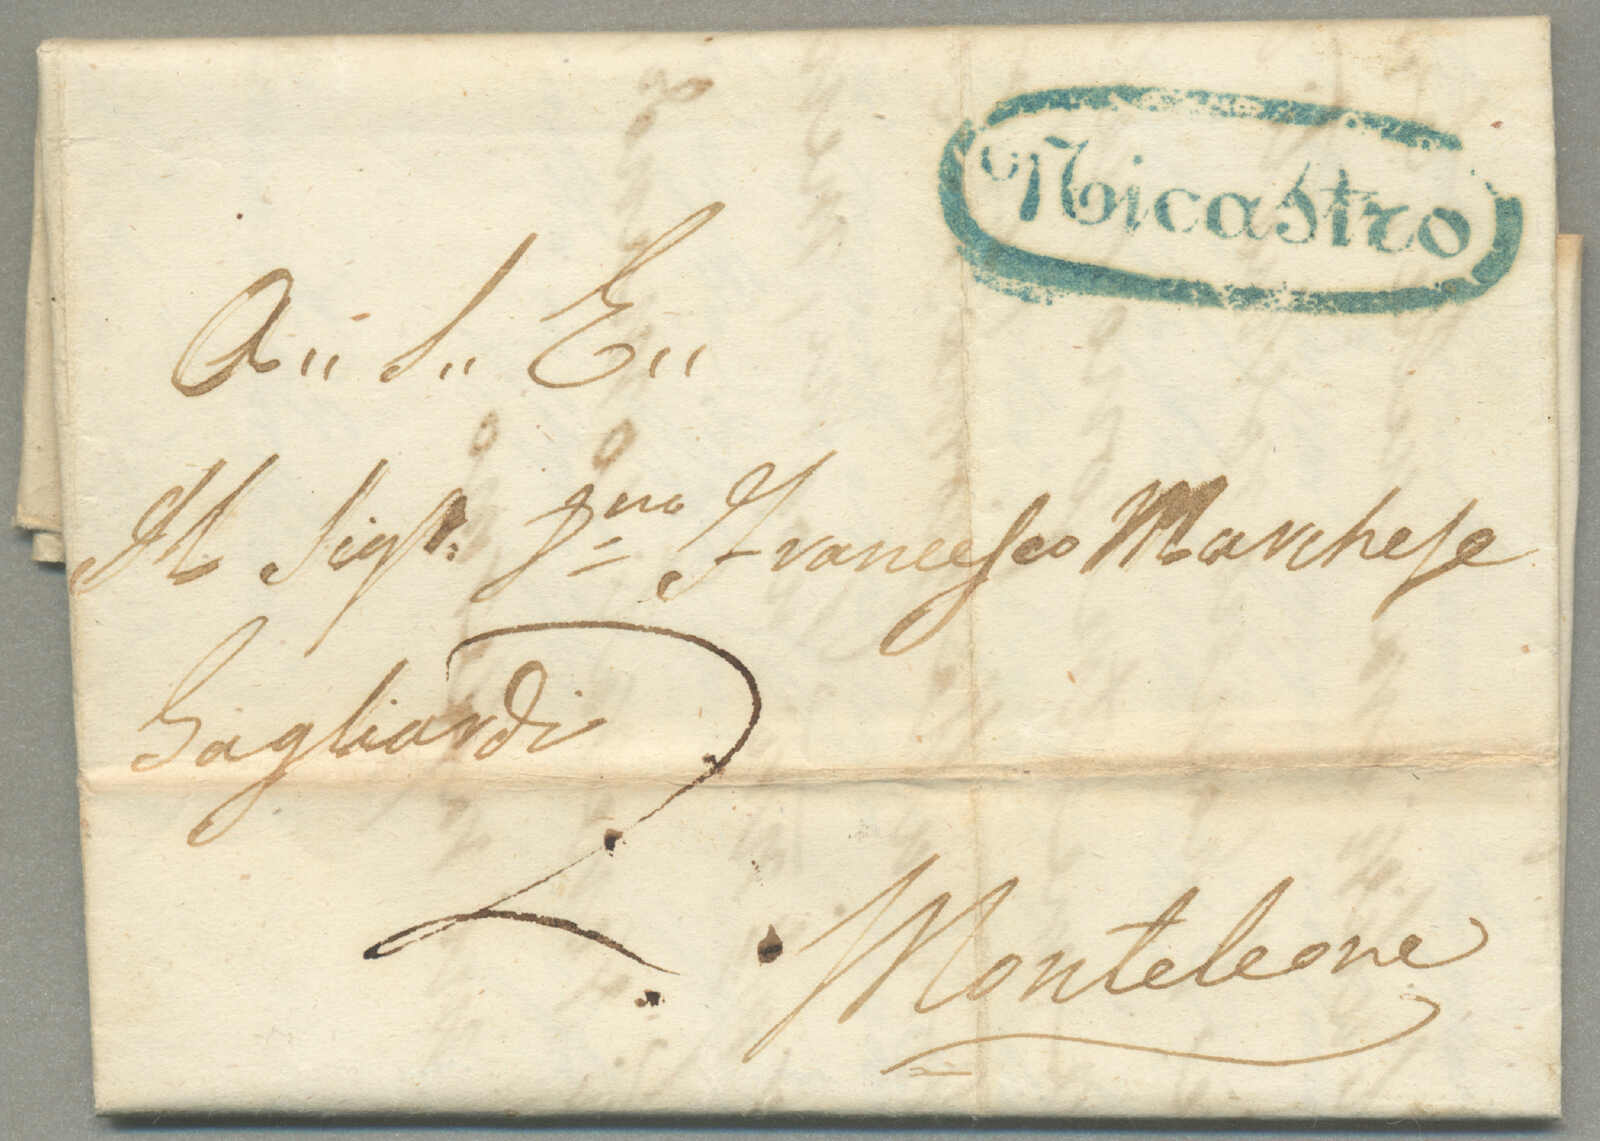 Nicastro
A,, S,, E,,
Il Sigr. Francesco Marchese
Gagliardi
2
Monteleone